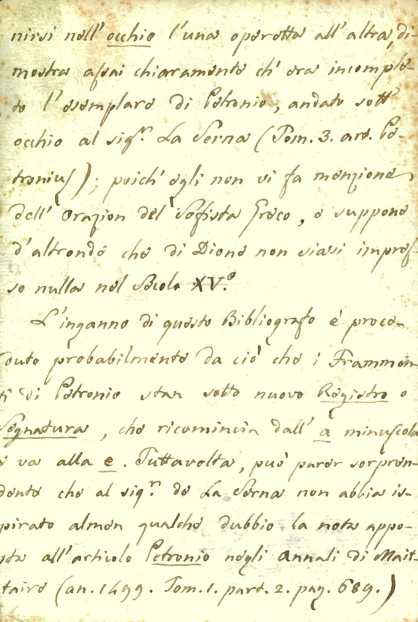 nirsi nell' occhio l'una operetta all'altra, di-
mostra assai chiaramente ch' era incomple-
to l'esemplare di Petronio, andato sott'
occhio al sigr. La Serna (Tom. 3. art. Pe-
tronius); poich' egli non vi fa menzione
dell' Orazion del Sofista Greco, e suppone
d'altronde che di Dione non siasi impres-
so nulla nel secolo XV.º
L'inganno di questo Bibliografo è proce-
duto probabilmente da ciò che i Frammen-
ti di Petronio stan sotto nuovo Registro o
Segnatura, che ricomincia dall' a minuscola
e va alla e. Tuttavolta, può parer sorpren-
dente che al sigr. de La Serna non abbia is-
pirato almen qualche dubbio la nota appo-
sta all'articolo Petronio negli Annali di Mait-
taire (an. 1499. Tom. 1. part. 2. pag. 689.)